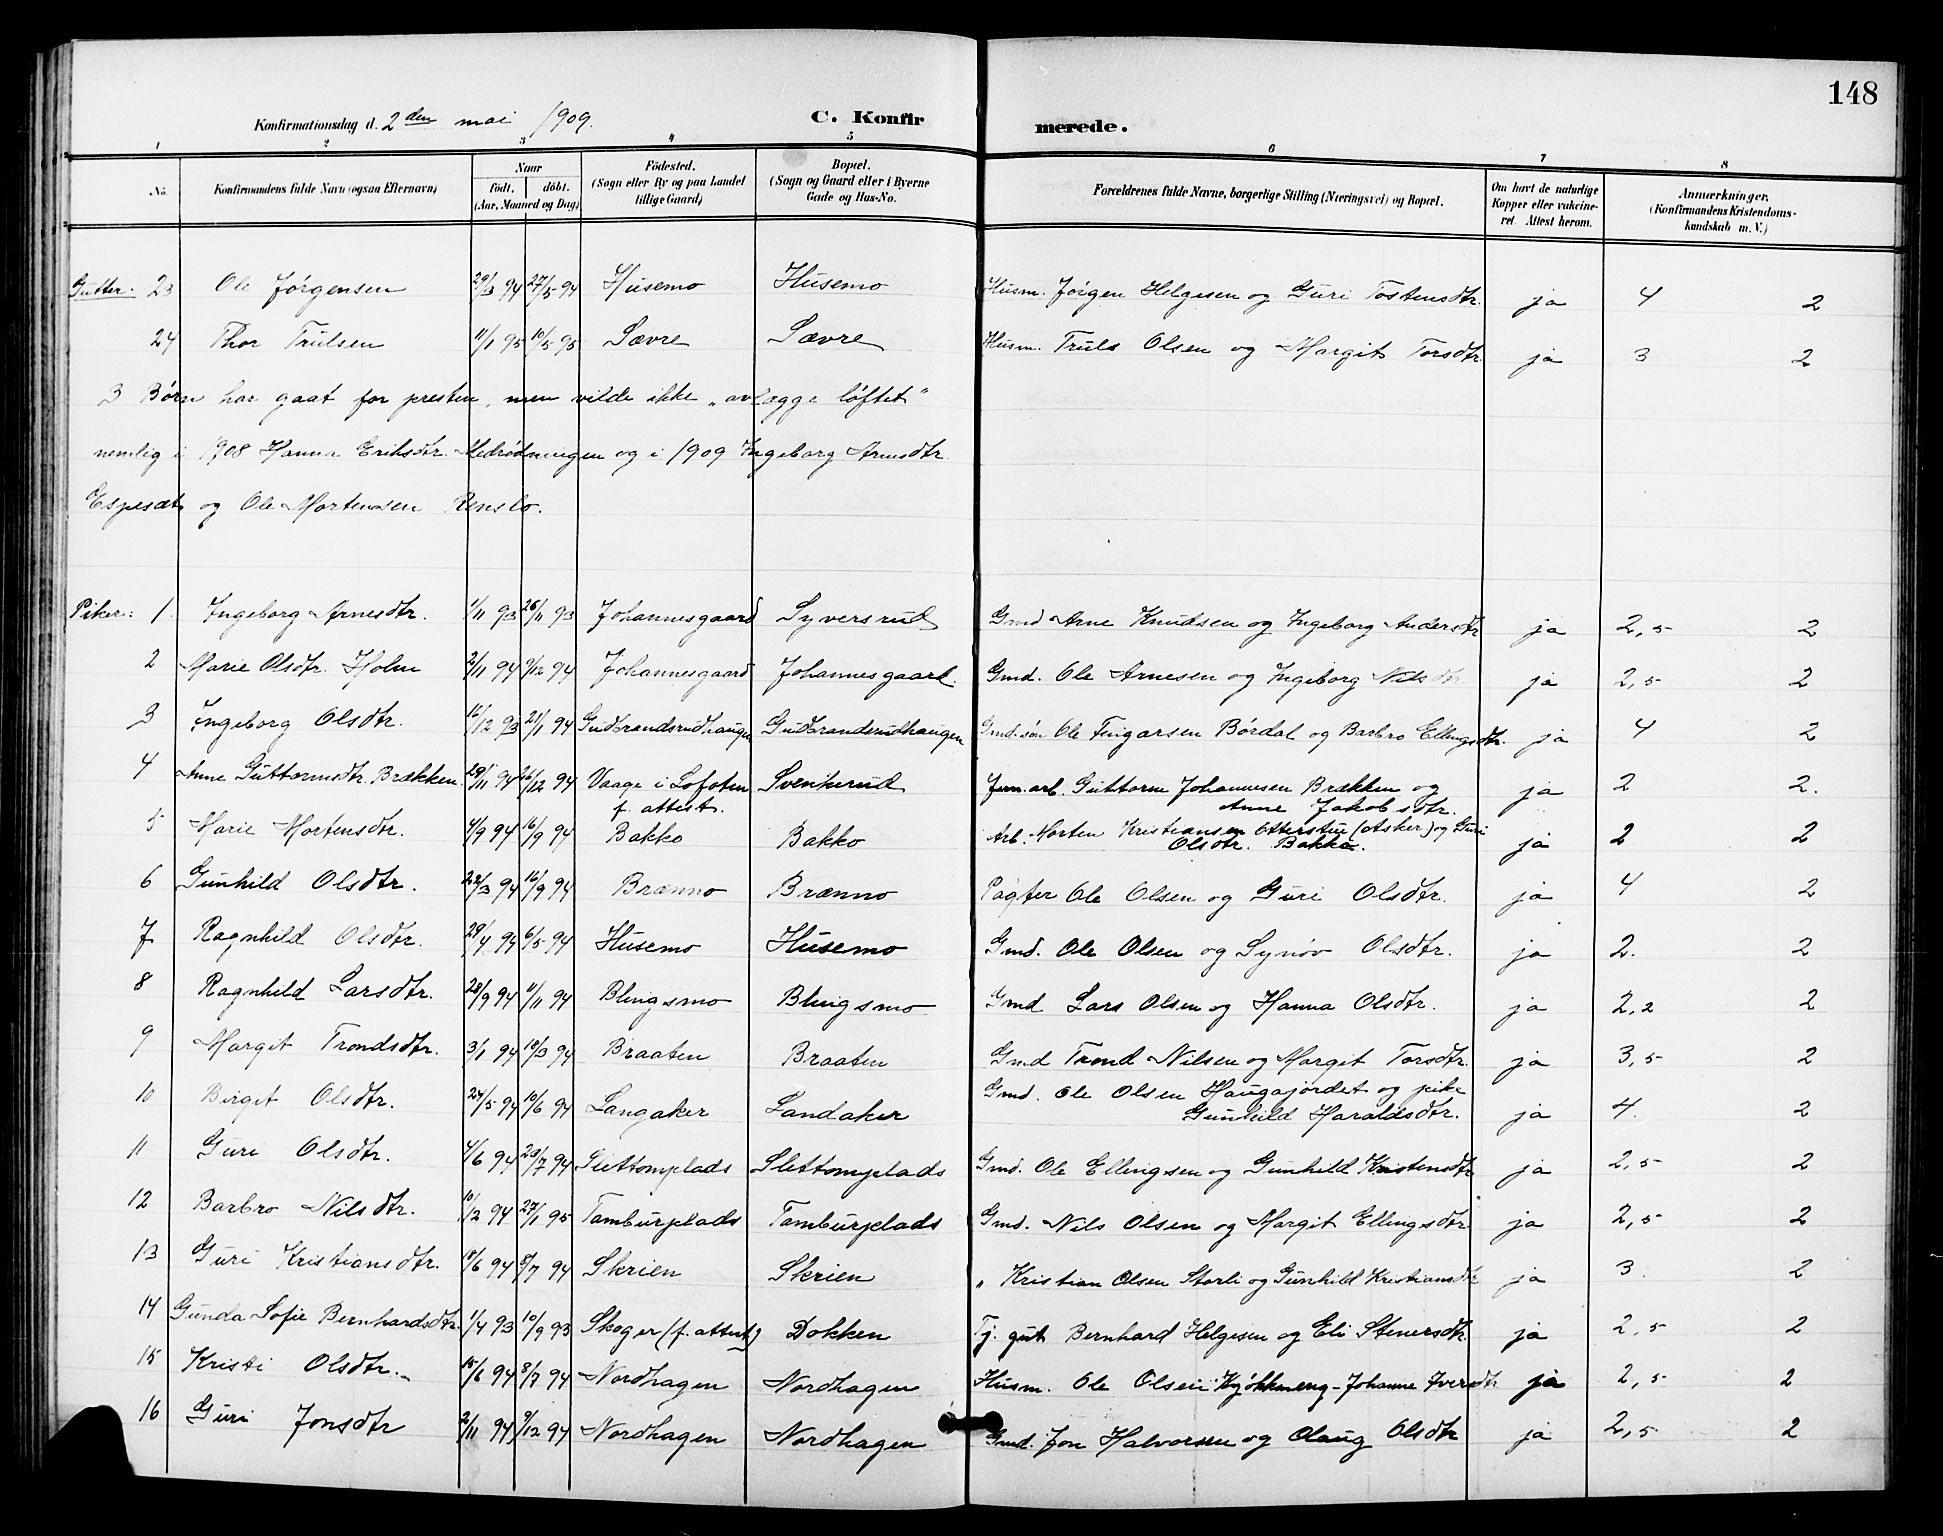 148
Konfirmationsdag d. 2den mai 1909.
C. Konfirmerede.
1 2 3 4 5 6 7 8
No. Konfirmandens fulde Navn (ogsaa Efternavn) Naar født. døbt. (Aar, Maaned og Dag) Fødested. (Sogn eller By og paa Landet tillige Gaard) Bopæl. (Sogn og Gaard eller i Byerne Gade og Hus-No. Forældrenes fulde Navne, borgerlige Stilling (Næringsvei) og Bopæl. Om havt de naturlige Kopper eller vakcineret. Attest herom. Anmærkninger. (Konfirmandens Kristendomskundskab m. V.)
Gutter. 23 Ole Jørgensen 29/3 94 27/5 94 Husemo Husemo Husm. Jørgen Helgesen og Guri Tostensdtr. ja 4 2
24 Thor Trulsen 11/1 95 10/5 95 Sævre Sævre Husm. Truls Olsen og Margit Torsdtr. ja 3 2
3 Børn har gaat for presten, men vilde ikke „avlægge løftet"
nemlig i 1908 Hanna Eriksdtr. Medrødningen og i 1909 Ingeborg Arnesdtr.
Espesæt og Ole Mortensen Renslo.
Piker: 1. Ingeborg Arnesdtr. 1/11 93 26/11 93 Johannesgaard Syversrud Gmd Arne Knudsen og Ingeborg Andersdtr ja 2,5 2
2 Marie Olsdtr. Holm 2/11 94 9/12 94 Johannesgaard Johannesgaard. Gmd. Ole Arnesen og Ingeborg Nilsdtr. ja 2,5 2
3 Ingeborg Olsdtr. 16/12 93 21/1 94 Gudbrandsrudhaugen Gudbrandsrudhaugen Gmd. søn Ole Fingarsen Børdal og Barbro Ellingsdtr. ja 4 2
4 Anne Guttormsdtr. Brækken 29/11 94 26/12 94 Vaage i Lofoten f. attest. Svenkerud Jern.arb. Guttorm Johannesen Brækken og Anne Jakobsdtr. ja 2 2.
5 Marie Mortensdtr. 4/9 94 16/9 94 Bakko Bakko Arb. Morten Kristiansen Otterstue (Asker) og Guri Olsdtr. Bakko. ja 2 2
6 Gunhild Olsdtr. 22/3 94 16/9 94 Brænno Brænno Pagter Ole Olsen og Guri Olsdtr. ja 4 2
7 Ragnhild Olsdtr. 29/4 94 6/5 94 Husemo Husemo Gmd. Ole Olsen og Synøv Olsdtr. ja 2. 2
8 Ragnhild Larsdtr. 28/9 94 11/11 94 Blingsmo Blingsmo Gmd Lars Olsen og Hanna Olsdtr. ja 2,2 2
9 Margit Trondsdtr. 3/1 94 18/3 94 Braaten Braaten Gmd Trond Nilsen og Margit Torsdtr. ja 3,5 2
10 Birgit Olsdtr. 24/5 94 10/6 94 Langaker Landaker Gmd. Ole Olsen Haugajordet og pike Gunhild Haraldsdtr. ja 4. 2
11 Guri Olsdtr. 4/6 94 29/7 94 Slettomplads Slettomplads Gmd. Ole Ellingsen og Gunhild Kristensdtr ja 2,5 2
12 Barbro Nilsdtr. 10/12 94 27/1 95 Tamburplads Tamburplads Gmd. Nils Olsen og Margit Ellingsdtr ja 2,5 2
13 Guri Kristiansdtr. 18/6 94 8/7 94 Skrien Skrien „ Kristian Olsen Storli og Gunhild Kristiansdtr ja 3. 2
14 Gunda Sofie Bernhardsdtr. 1/4 93 10/9 93 Skoger (f. attest) Dokken Tj. gut Bernhard Helgesen og Eli Stenersdtr. ja 2,5 2
15 Kristi Olsdtr. 15/6 94 8/7 94 Nordhagen Nordhagen Husm. Ole Olsen Kjøkkeneng - Johanne Iversdtr ja 2,5 2
16 Guri Jonsdtr 2/11 94 9/12 94 Nordhagen Nordhagen Gmd. Jon Halvorsen og Olaug Olsdtr ja 2,5 2